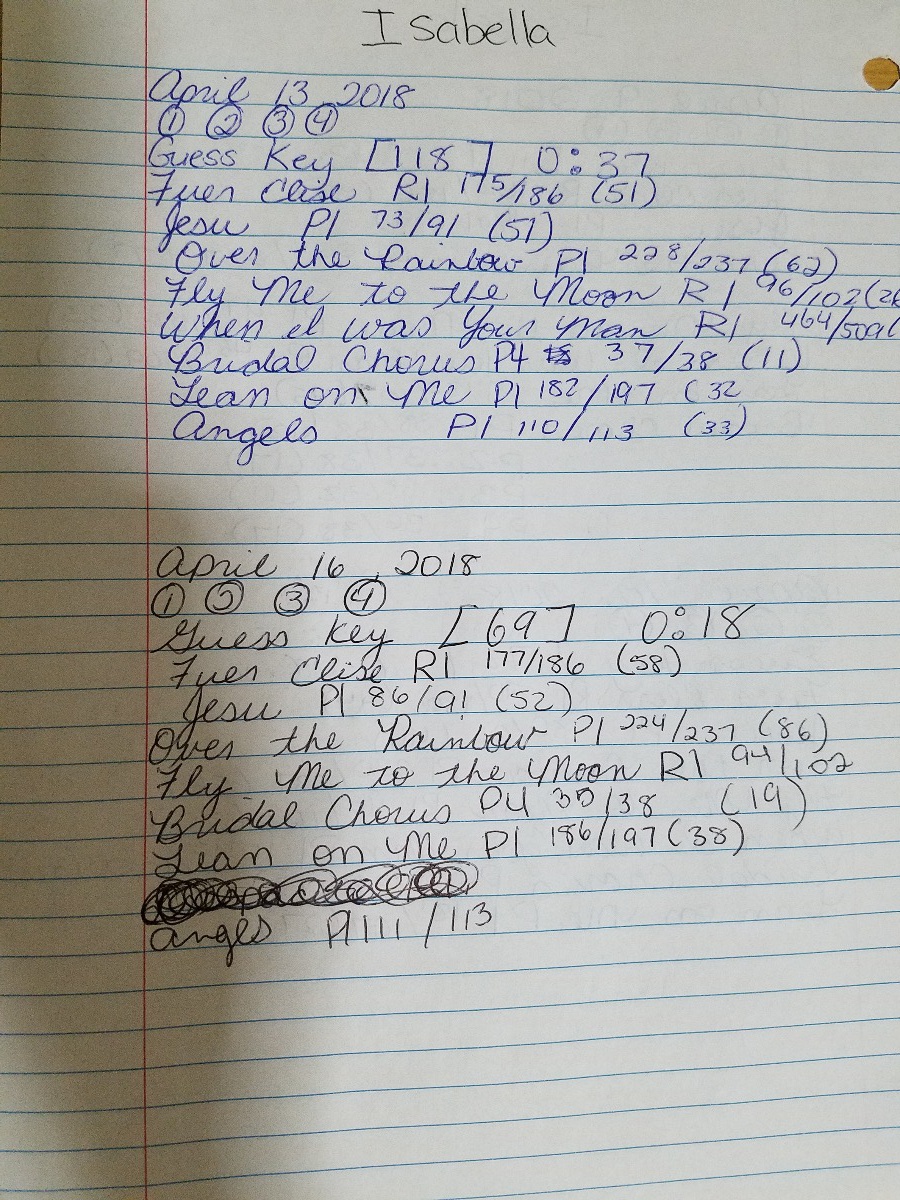 Isabella
April 13 2018
① ② ③ ④
Guess Key [118] 0:37
Fuer Elise R1 175/186 (51)
Jesu P1 73/91 (51)
Over the Rainbow P1 228/237 (62)
Fly Me to the Moon R1 96/102 (
When I was Your Man R1 464/509(
Bridal Chorus P4 37/38 (11)
Lean on Me P1 182/197 (32
Angels P1 110/113 (33)
April 16, 2018
① ② ③ ④
Guess Key [69] 0:18
Fuer Elise R1 177/186 (58)
Jesu P1 86/91 (52)
Over the Rainbow P1 224/237 (86)
Fly Me to the Moon R1 94/102
Bridal Chorus P4 /38 (19)
Lean on Me P1 186/197 (38)
Angels P1 111/113